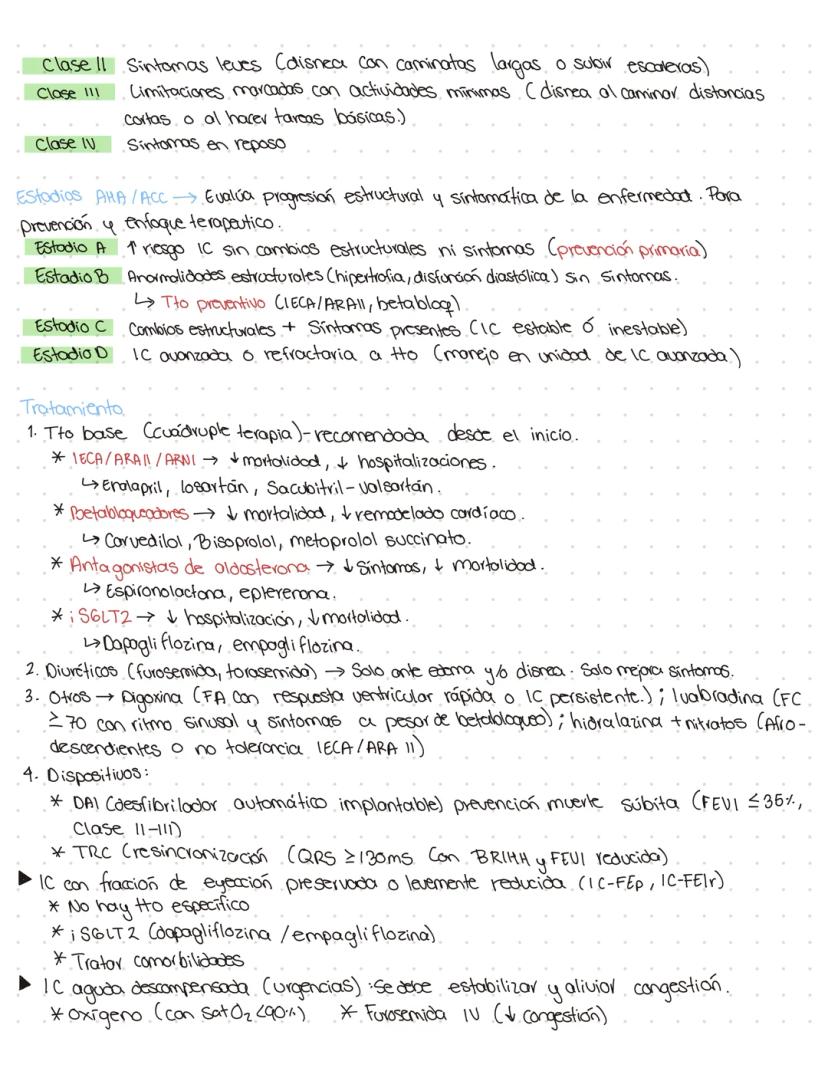 Clase II Sintomas leves (disnea con caminatas largas o subir escaleras)
Clase III Limitaciones marcadas con actividades minimas (disnea al caminar distancias
cortas o al hacer tareas básicas.)
Clase IV Sintomas en reposo
Estadios AHA/ACC → Evalúa progresión estructural y sintomática de la enfermedad. Para
prevención y enfoque terapeutico.
Estadio A ↑ riesgo IC sin cambios estructurales ni sintomas (prevención primaria)
Estadio B Anormalidades estructurales (hipertrofia, disfunción diastólica) sin sintomas.
↳ Tto preventivo (IECA/ARAII, betabloq)
Estadio C Cambios estructurales + Síntomas presentes (IC estable ó inestable)
Estadio D IC avanzada o refractaria a tto (manejo en unidad de IC avanzada.)
Tratamiento
1. Tto base (cuádruple terapia)-recomendada desde el inicio.
* IECA/ARAII/ARNI → ↓ mortalidad, ↓ hospitalizaciones.
↳ Enalapril, losartán, Sacubitril-valsartán.
* Betabloqueadores → ↓ mortalidad, ↓ remodelado cardíaco.
↳ Carvedilol, Bisoprolol, metoprolol succinato.
* Antagonistas de aldosterona → ↓ Síntomas, ↓ mortalidad.
↳ Espironolactona, eplerenona.
* iSGLT2 → ↓ hospitalización, ↓ mortalidad.
↳ Dapagliflozina, empagliflozina.
2. Diuréticos (furosemida, torasemida) → Solo ante edema y/o disnea. Solo mejora sintomas.
3. Otros → Digoxina (FA con respuesta ventricular rápida o IC persistente.); Ivabradina (FC
≥70 con ritmo sinusal y sintomas a pesar de betabloqueo); hidralazina + nitratos (Afro-
descendientes o no tolerancia IECA/ARA II)
4. Dispositivos:
* DAI (desfibrilador automático implantable) prevención muerte súbita (FEVI ≤35%,
Clase II-III)
* TRC (resincronización (QRS ≥130ms con BRIHH y FEVI reducida)
▶ IC con fracción de eyección preservada o levemente reducida (IC-FEp, IC-FElr)
* No hay tto especifico
* iSGLT2 (dapagliflozina /empagliflozina)
* Tratar comorbilidades
▶ IC aguda descompensada (urgencias): Se debe estabilizar y aliviar congestión.
* Oxígeno (con Sat O2 <90%) * Furosemida IV (↓ congestión)